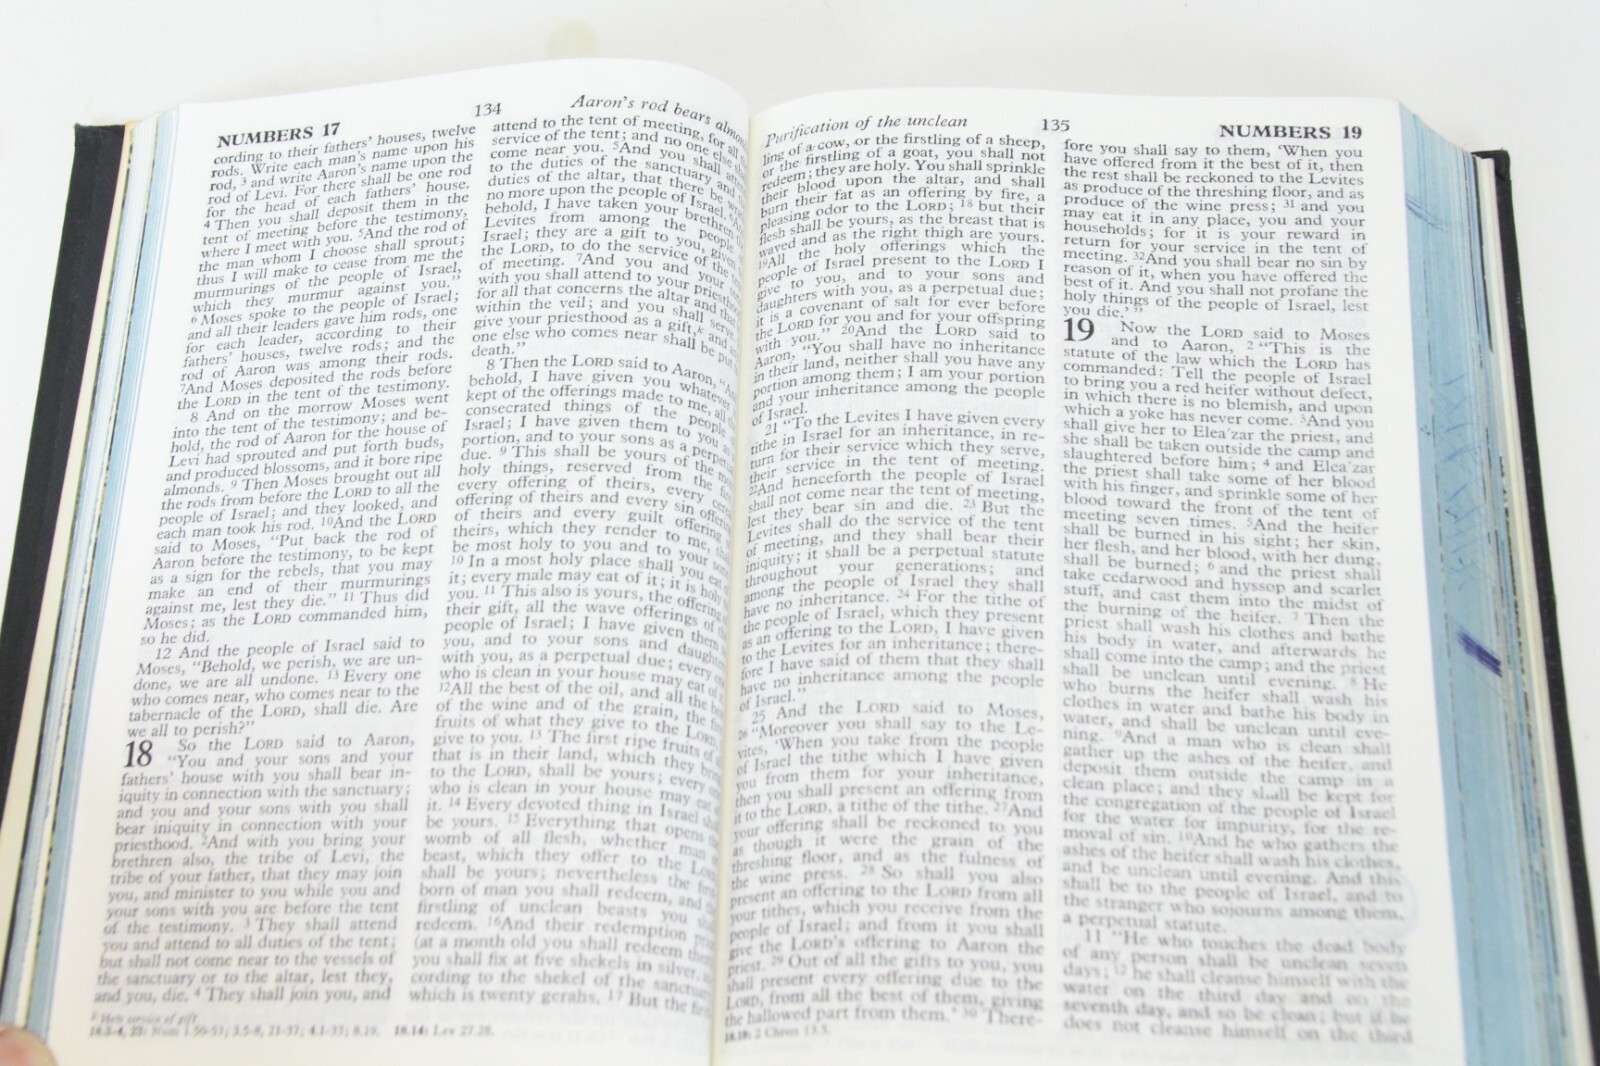 134
Aaron's rod bears
NUMBERS 17
cording to their fathers' houses, twelve
rods. Write each man's name upon his
rod, 3 and write Aaron's name upon the
rod of Levi. For there shall be one rod
for the head of each fathers' house.
4 Then you shall deposit them in the
tent of meeting before the testimony,
where I meet with you. 5And the rod of
the man whom I choose shall sprout;
thus I will make to cease from me the
murmurings of the people of Israel,
which they murmur against you."
6 Moses spoke to the people of Israel;
and all their leaders gave him rods, one
for each leader, according to their
fathers' houses, twelve rods; and the
rod of Aaron was among their rods.
7And Moses deposited the rods before
the LORD in the tent of the testimony.
8 And on the morrow Moses went
into the tent of the testimony; and be-
hold, the rod of Aaron for the house of
Levi had sprouted and put forth buds,
and produced blossoms, and it bore ripe
almonds. 9 Then Moses brought out all
the rods from before the LORD to all the
people of Israel; and they looked, and
each man took his rod. 10And the LORD
said to Moses, "Put back the rod of
Aaron before the testimony, to be kept
as a sign for the rebels, that you may
make an end of their murmurings
against me, lest they die." 11 Thus did
Moses; as the LORD commanded him,
so he did.
12 And the people of Israel said to
Moses, "Behold, we perish, we are un-
done, we are all undone. 13 Every one
who comes near, who comes near to the
tabernacle of the LORD, shall die. Are
we all to perish?"
18 So the LORD said to Aaron,
"You and your sons and your
fathers' house with you shall bear in-
iquity in connection with the sanctuary;
and you and your sons with you shall
bear iniquity in connection with your
priesthood. 2And with you bring your
brethren also, the tribe of Levi, the
tribe of your father, that they may join
you, and minister to you while you and
your sons with you are before the tent
of the testimony. 3 They shall attend
you and attend to all duties of the tent;
but shall not come near to the vessels of
the sanctuary or to the altar, lest they,
and you, die. 4 They shall join you, and
attend to the tent of meeting, for all
service of the tent; and no one else
come near you. 5And you shall
to the duties of the sanctuary and
duties of the altar, that there be
no more upon the people of Israel. 6
behold, I have taken your brethren
Levites from among the people
Israel; they are a gift to you, given
the LORD, to do the service of the
of meeting. 7And you and your
with you shall attend to your
for all that concerns the altar and
within the veil; and you shall
give your priesthood as a gift,k and
one else who comes near shall be put
death."
8 Then the LORD said to Aaron,
behold, I have given you whatever
kept of the offerings made to me, all
consecrated things of the people
Israel; I have given them to you as
portion, and to your sons as a
due. 9 This shall be yours of the
holy things, reserved from the
every offering of theirs, every
offering of theirs and every sin
of theirs and every guilt offering
theirs, which they render to me,
be most holy to you and to your
10 In a most holy place shall you eat
it; every male may eat of it; it is holy
you. 11 This also is yours, the offering
their gift, all the wave offerings of
people of Israel; I have given them
you, and to your sons and
with you, as a perpetual due; every
who is clean in your house may eat of
12All the best of the oil, and all the
of the wine and of the grain, the
fruits of what they give to the LORD,
give to you. 13 The first ripe fruits of
that is in their land, which they
to the LORD, shall be yours; every
who is clean in your house may eat
it. 14 Every devoted thing in Israel
be yours. 15 Everything that opens
womb of all flesh, whether man
beast, which they offer to the
shall be yours; nevertheless the
born of man you shall redeem, and
firstling of unclean beasts you
redeem. 16And their redemption
(at a month old you shall redeem
you shall fix at five shekels in silver,
cording to the shekel of the
which is twenty gerahs. 17 But the
k Heb service of gift
18.3-4, 23: Num 1.50-53; 3.5-8, 21-37; 4.1-33; 8.19. 18.14: Lev 27.28.
Purification of the unclean
135
NUMBERS 19
ling of a cow, or the firstling of a sheep,
or the firstling of a goat, you shall not
redeem; they are holy. You shall sprinkle
their blood upon the altar, and shall
burn their fat as an offering by fire, a
pleasing odor to the LORD; 18 but their
flesh shall be yours, as the breast that is
waved and as the right thigh are yours.
19All the holy offerings which the
people of Israel present to the LORD I
give to you, and to your sons and
daughters with you, as a perpetual due;
it is a covenant of salt for ever before
the LORD for you and for your offspring
with you." 20And the LORD said to
Aaron, "You shall have no inheritance
in their land, neither shall you have any
portion among them; I am your portion
and your inheritance among the people
of Israel.
21 "To the Levites I have given every
tithe in Israel for an inheritance, in re-
turn for their service which they serve,
their service in the tent of meeting.
22And henceforth the people of Israel
shall not come near the tent of meeting,
lest they bear sin and die. 23 But the
Levites shall do the service of the tent
of meeting, and they shall bear their
iniquity; it shall be a perpetual statute
throughout your generations; and
among the people of Israel they shall
have no inheritance. 24 For the tithe of
the people of Israel, which they present
as an offering to the LORD, I have given
to the Levites for an inheritance; there-
fore I have said of them that they shall
have no inheritance among the people
of Israel."
25 And the LORD said to Moses,
26 "Moreover you shall say to the Le-
vites, 'When you take from the people
of Israel the tithe which I have given
you from them for your inheritance,
then you shall present an offering from
it to the LORD, a tithe of the tithe. 27And
your offering shall be reckoned to you
as though it were the grain of the
threshing floor, and as the fulness of
the wine press. 28 So shall you also
present an offering to the LORD from all
your tithes, which you receive from the
people of Israel; and from it you shall
give the LORD's offering to Aaron the
priest. 29 Out of all the gifts to you, you
shall present every offering due to the
LORD, from all the best of them, giving
the hallowed part from them.' 30 There-
18.19: 2 Chron 13.5.
fore you shall say to them, 'When you
have offered from it the best of it, then
the rest shall be reckoned to the Levites
as produce of the threshing floor, and as
produce of the wine press; 31 and you
may eat it in any place, you and your
households; for it is your reward in
return for your service in the tent of
meeting. 32And you shall bear no sin by
reason of it, when you have offered the
best of it. And you shall not profane the
holy things of the people of Israel, lest
you die.' "
19 Now the LORD said to Moses
and to Aaron, 2 "This is the
statute of the law which the LORD has
commanded: Tell the people of Israel
to bring you a red heifer without defect,
in which there is no blemish, and upon
which a yoke has never come. 3And you
shall give her to Elea'zar the priest, and
she shall be taken outside the camp and
slaughtered before him; 4 and Elea'zar
the priest shall take some of her blood
with his finger, and sprinkle some of her
blood toward the front of the tent of
meeting seven times. 5And the heifer
shall be burned in his sight; her skin,
her flesh, and her blood, with her dung,
shall be burned; 6 and the priest shall
take cedarwood and hyssop and scarlet
stuff, and cast them into the midst of
the burning of the heifer. 7 Then the
priest shall wash his clothes and bathe
his body in water, and afterwards he
shall come into the camp; and the priest
shall be unclean until evening. 8 He
who burns the heifer shall wash his
clothes in water and bathe his body in
water, and shall be unclean until eve-
ning. 9And a man who is clean shall
gather up the ashes of the heifer, and
deposit them outside the camp in a
clean place; and they shall be kept for
the congregation of the people of Israel
for the water for impurity, for the re-
moval of sin. 10And he who gathers the
ashes of the heifer shall wash his clothes,
and be unclean until evening. And this
shall be to the people of Israel, and to
the stranger who sojourns among them,
a perpetual statute.
11 "He who touches the dead body
of any person shall be unclean seven
days; 12 he shall cleanse himself with the
water on the third day and on the
seventh day, and so be clean; but if he
does not cleanse himself on the third